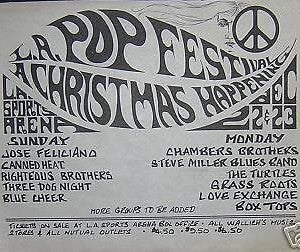 L.A. POP FESTIVAL
A CHRISTMAS HAPPENING
L.A.
SPORTS
ARENA
DEC
22 & 23
SUNDAY
JOSE FELICIANO
CANNED HEAT
RIGHTEOUS BROTHERS
THREE DOG NIGHT
BLUE CHEER
MONDAY
CHAMBERS BROTHERS
STEVE MILLER BLUES BAND
THE TURTLES
GRASS ROOTS
LOVE EXCHANGE
BOX TOPS
MORE GROUPS TO BE ADDED
TICKETS ON SALE AT L.A. SPORTS ARENA BOX OFFICE - ALL WALLICH'S MUSIC
STORES & ALL MUTUAL OUTLETS • $4.50 • $5.50 • $6.50